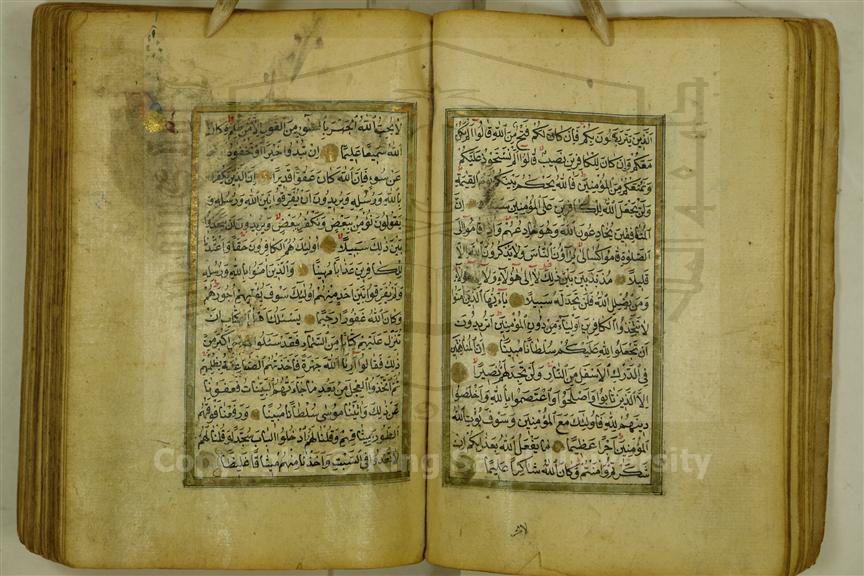 الَّذِينَ يَتَرَبَّصُونَ بِكُمْ فَاِنْ كَانَ لَكُمْ فَتْحٌ مِنَ اللهِ قَالُوا اَلَمْ نَكُنْ
مَعَكُمْ وَاِنْ كَانَ لِلْكَافِرِينَ نَصِيبٌ قَالُوا اَلَمْ نَسْتَحْوِذْ عَلَيْكُمْ
وَنَمْنَعْكُمْ مِنَ الْمُؤْمِنِينَ فَاللهُ يَحْكُمُ بَيْنَكُمْ يَوْمَ الْقِيمَةِ
وَلَنْ يَجْعَلَ اللهُ لِلْكَافِرِينَ عَلَى الْمُؤْمِنِينَ سَبِيلًا اِنَّ
الْمُنَافِقِينَ يُخَادِعُونَ اللهَ وَهُوَ خَادِعُهُمْ وَاِذَا قَامُوا اِلَى
الصَّلٰوةِ قَامُوا كُسَالٰى يُرَاؤُنَ النَّاسَ وَلَا يَذْكُرُونَ اللهَ اِلَّا
قَلِيلًا مُذَبْذَبِينَ بَيْنَ ذٰلِكَ لَا اِلٰى هٰؤُلَاءِ وَلَا اِلٰى هٰؤُلَاءِ
وَمَنْ يُضْلِلِ اللهُ فَلَنْ تَجِدَ لَهُ سَبِيلًا يَا اَيُّهَا الَّذِينَ اٰمَنُوا
لَا تَتَّخِذُوا الْكَافِرِينَ اَوْلِيَاءَ مِنْ دُونِ الْمُؤْمِنِينَ اَتُرِيدُونَ
اَنْ تَجْعَلُوا لِلهِ عَلَيْكُمْ سُلْطَانًا مُبِينًا اِنَّ الْمُنَافِقِينَ
فِى الدَّرْكِ الْاَسْفَلِ مِنَ النَّارِ وَلَنْ تَجِدَ لَهُمْ نَصِيرًا
اِلَّا الَّذِينَ تَابُوا وَاَصْلَحُوا وَاعْتَصَمُوا بِاللهِ وَاَخْلَصُوا
دِينَهُمْ لِلهِ فَاُولٰئِكَ مَعَ الْمُؤْمِنِينَ وَسَوْفَ يُؤْتِ اللهُ
الْمُؤْمِنِينَ اَجْرًا عَظِيمًا مَا يَفْعَلُ اللهُ بِعَذَابِكُمْ اِنْ
شَكَرْتُمْ وَاٰمَنْتُمْ وَكَانَ اللهُ شَاكِرًا عَلِيمًا
لَا يُحِبُّ اللهُ الْجَهْرَ بِالسُّوءِ مِنَ الْقَوْلِ اِلَّا مَنْ ظُلِمَ وَكَانَ
اللهُ سَمِيعًا عَلِيمًا اِنْ تُبْدُوا خَيْرًا اَوْ تُخْفُوهُ اَوْ تَعْفُوا
عَنْ سُوءٍ فَاِنَّ اللهَ كَانَ عَفُوًّا قَدِيرًا اِنَّ الَّذِينَ يَكْفُرُونَ
بِاللهِ وَرُسُلِهِ وَيُرِيدُونَ اَنْ يُفَرِّقُوا بَيْنَ اللهِ وَرُسُلِهِ وَ
يَقُولُونَ نُؤْمِنُ بِبَعْضٍ وَنَكْفُرُ بِبَعْضٍ وَيُرِيدُونَ اَنْ يَتَّخِذُوا
بَيْنَ ذٰلِكَ سَبِيلًا اُولٰئِكَ هُمُ الْكَافِرُونَ حَقًّا وَاَعْتَدْنَا
لِلْكَافِرِينَ عَذَابًا مُهِينًا وَالَّذِينَ اٰمَنُوا بِاللهِ وَرُسُلِهِ
وَلَمْ يُفَرِّقُوا بَيْنَ اَحَدٍ مِنْهُمْ اُولٰئِكَ سَوْفَ يُؤْتِيهِمْ اُجُورَهُمْ
وَكَانَ اللهُ غَفُورًا رَحِيمًا يَسْئَلُكَ اَهْلُ الْكِتَابِ اَنْ
تُنَزِّلَ عَلَيْهِمْ كِتَابًا مِنَ السَّمَاءِ فَقَدْ سَئَلُوا مُوسٰى اَكْبَرَ مِنْ
ذٰلِكَ فَقَالُوا اَرِنَا اللهَ جَهْرَةً فَاَخَذَتْهُمُ الصَّاعِقَةُ بِظُلْمِهِمْ
ثُمَّ اتَّخَذُوا الْعِجْلَ مِنْ بَعْدِ مَا جَاءَتْهُمُ الْبَيِّنَاتُ فَعَفَوْنَا
عَنْ ذٰلِكَ وَاٰتَيْنَا مُوسٰى سُلْطَانًا مُبِينًا وَرَفَعْنَا فَوْقَهُمُ
الطُّورَ بِمِيثَاقِهِمْ وَقُلْنَا لَهُمُ ادْخُلُوا الْبَابَ سُجَّدًا وَقُلْنَا لَهُمْ
لَا تَعْدُوا فِى السَّبْتِ وَاَخَذْنَا مِنْهُمْ مِيثَاقًا غَلِيظًا
Copyright © King Saud University